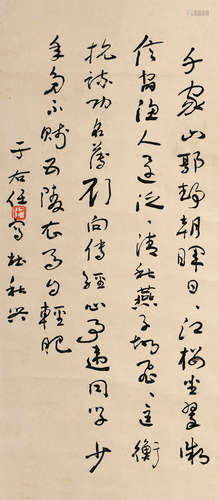 千家山郭靜朝暉日々江樓坐翠微
信宿漁人還泛々清秋燕子故飛々匡衡
抗疏功名薄劉向傳經心事違同學少
年多不賤五陵衣馬自輕肥
于右任寫杜秋興